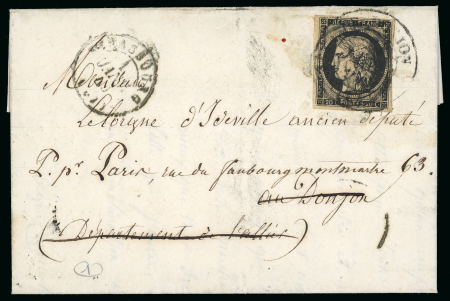 STRASBOURG
1
JANV.
49
REPUB. FRANC.
20 POSTES 20
Monsieur
Le lorgne d'Ideville ancien député
P. pr Paris, rue du faubourg montmartre 63.
au Donjon
(Département de l'allier)
1